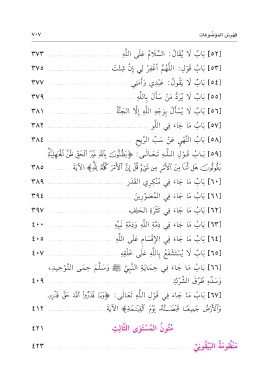 فِهْرِسُ المَوْضُوعَاتِ ٧٠٧
[٥٢] بَابٌ لَا يُقَالُ: السَّلَامُ عَلَى اللَّهِ ٣٧٣
[٥٣] بَابُ قَوْلِ: اللَّهُمَّ اغْفِرْ لِي إِنْ شِئْتَ ٣٧٥
[٥٤] بَابٌ لَا يَقُولُ: عَبْدِي وَأَمَتِي ٣٧٧
[٥٥] بَابٌ لَا يُرَدُّ مَنْ سَأَلَ بِاللَّهِ ٣٧٩
[٥٦] بَابٌ لَا يُسْأَلُ بِوَجْهِ اللَّهِ إِلَّا الجَنَّةُ ٣٨١
[٥٧] بَابُ مَا جَاءَ فِي اللَّوْ ٣٨٢
[٥٨] بَابُ النَّهْيِ عَنْ سَبِّ الرِّيحِ ٣٨٤
[٥٩] بَابُ قَوْلِ اللَّهِ تَعَالَى: ﴿يَظُنُّونَ بِاللَّهِ غَيْرَ الْحَقِّ ظَنَّ الْجَاهِلِيَّةِ
يَقُولُونَ هَل لَّنَا مِنَ الْأَمْرِ مِن شَيْءٍ قُلْ إِنَّ الْأَمْرَ كُلَّهُ لِلَّهِ﴾ الآيَةَ ٣٨٥
[٦٠] بَابُ مَا جَاءَ فِي مُنْكِرِي القَدَرِ ٣٨٩
[٦١] بَابُ مَا جَاءَ فِي المُصَوِّرِينَ ٣٩٤
[٦٢] بَابُ مَا جَاءَ فِي كَثْرَةِ الحَلِفِ ٣٩٧
[٦٣] بَابُ مَا جَاءَ فِي ذِمَّةِ اللَّهِ وَذِمَّةِ نَبِيِّهِ ٤٠٠
[٦٤] بَابُ مَا جَاءَ فِي الإِقْسَامِ عَلَى اللَّهِ ٤٠٥
[٦٥] بَابٌ لَا يُسْتَشْفَعُ بِاللَّهِ عَلَى خَلْقِهِ ٤٠٧
[٦٦] بَابُ مَا جَاءَ فِي حِمَايَةِ النَّبِيِّ ﷺ وَسَلَّمَ حِمَى التَّوْحِيدِ،
وَسَدِّهِ طُرُقَ الشِّرْكِ ٤٠٩
[٦٧] بَابُ مَا جَاءَ فِي قَوْلِ اللَّهِ تَعَالَى: ﴿وَمَا قَدَرُوا اللَّهَ حَقَّ قَدْرِهِ
وَالْأَرْضُ جَمِيعًا قَبْضَتُهُ يَوْمَ الْقِيَامَةِ﴾ الآيَةَ ٤١٢
مُتُونُ المُسْتَوَى الثَّالِثِ ٤٢١
مَنْظُومَةُ البَيْقُونِيِّ ٤٢٣